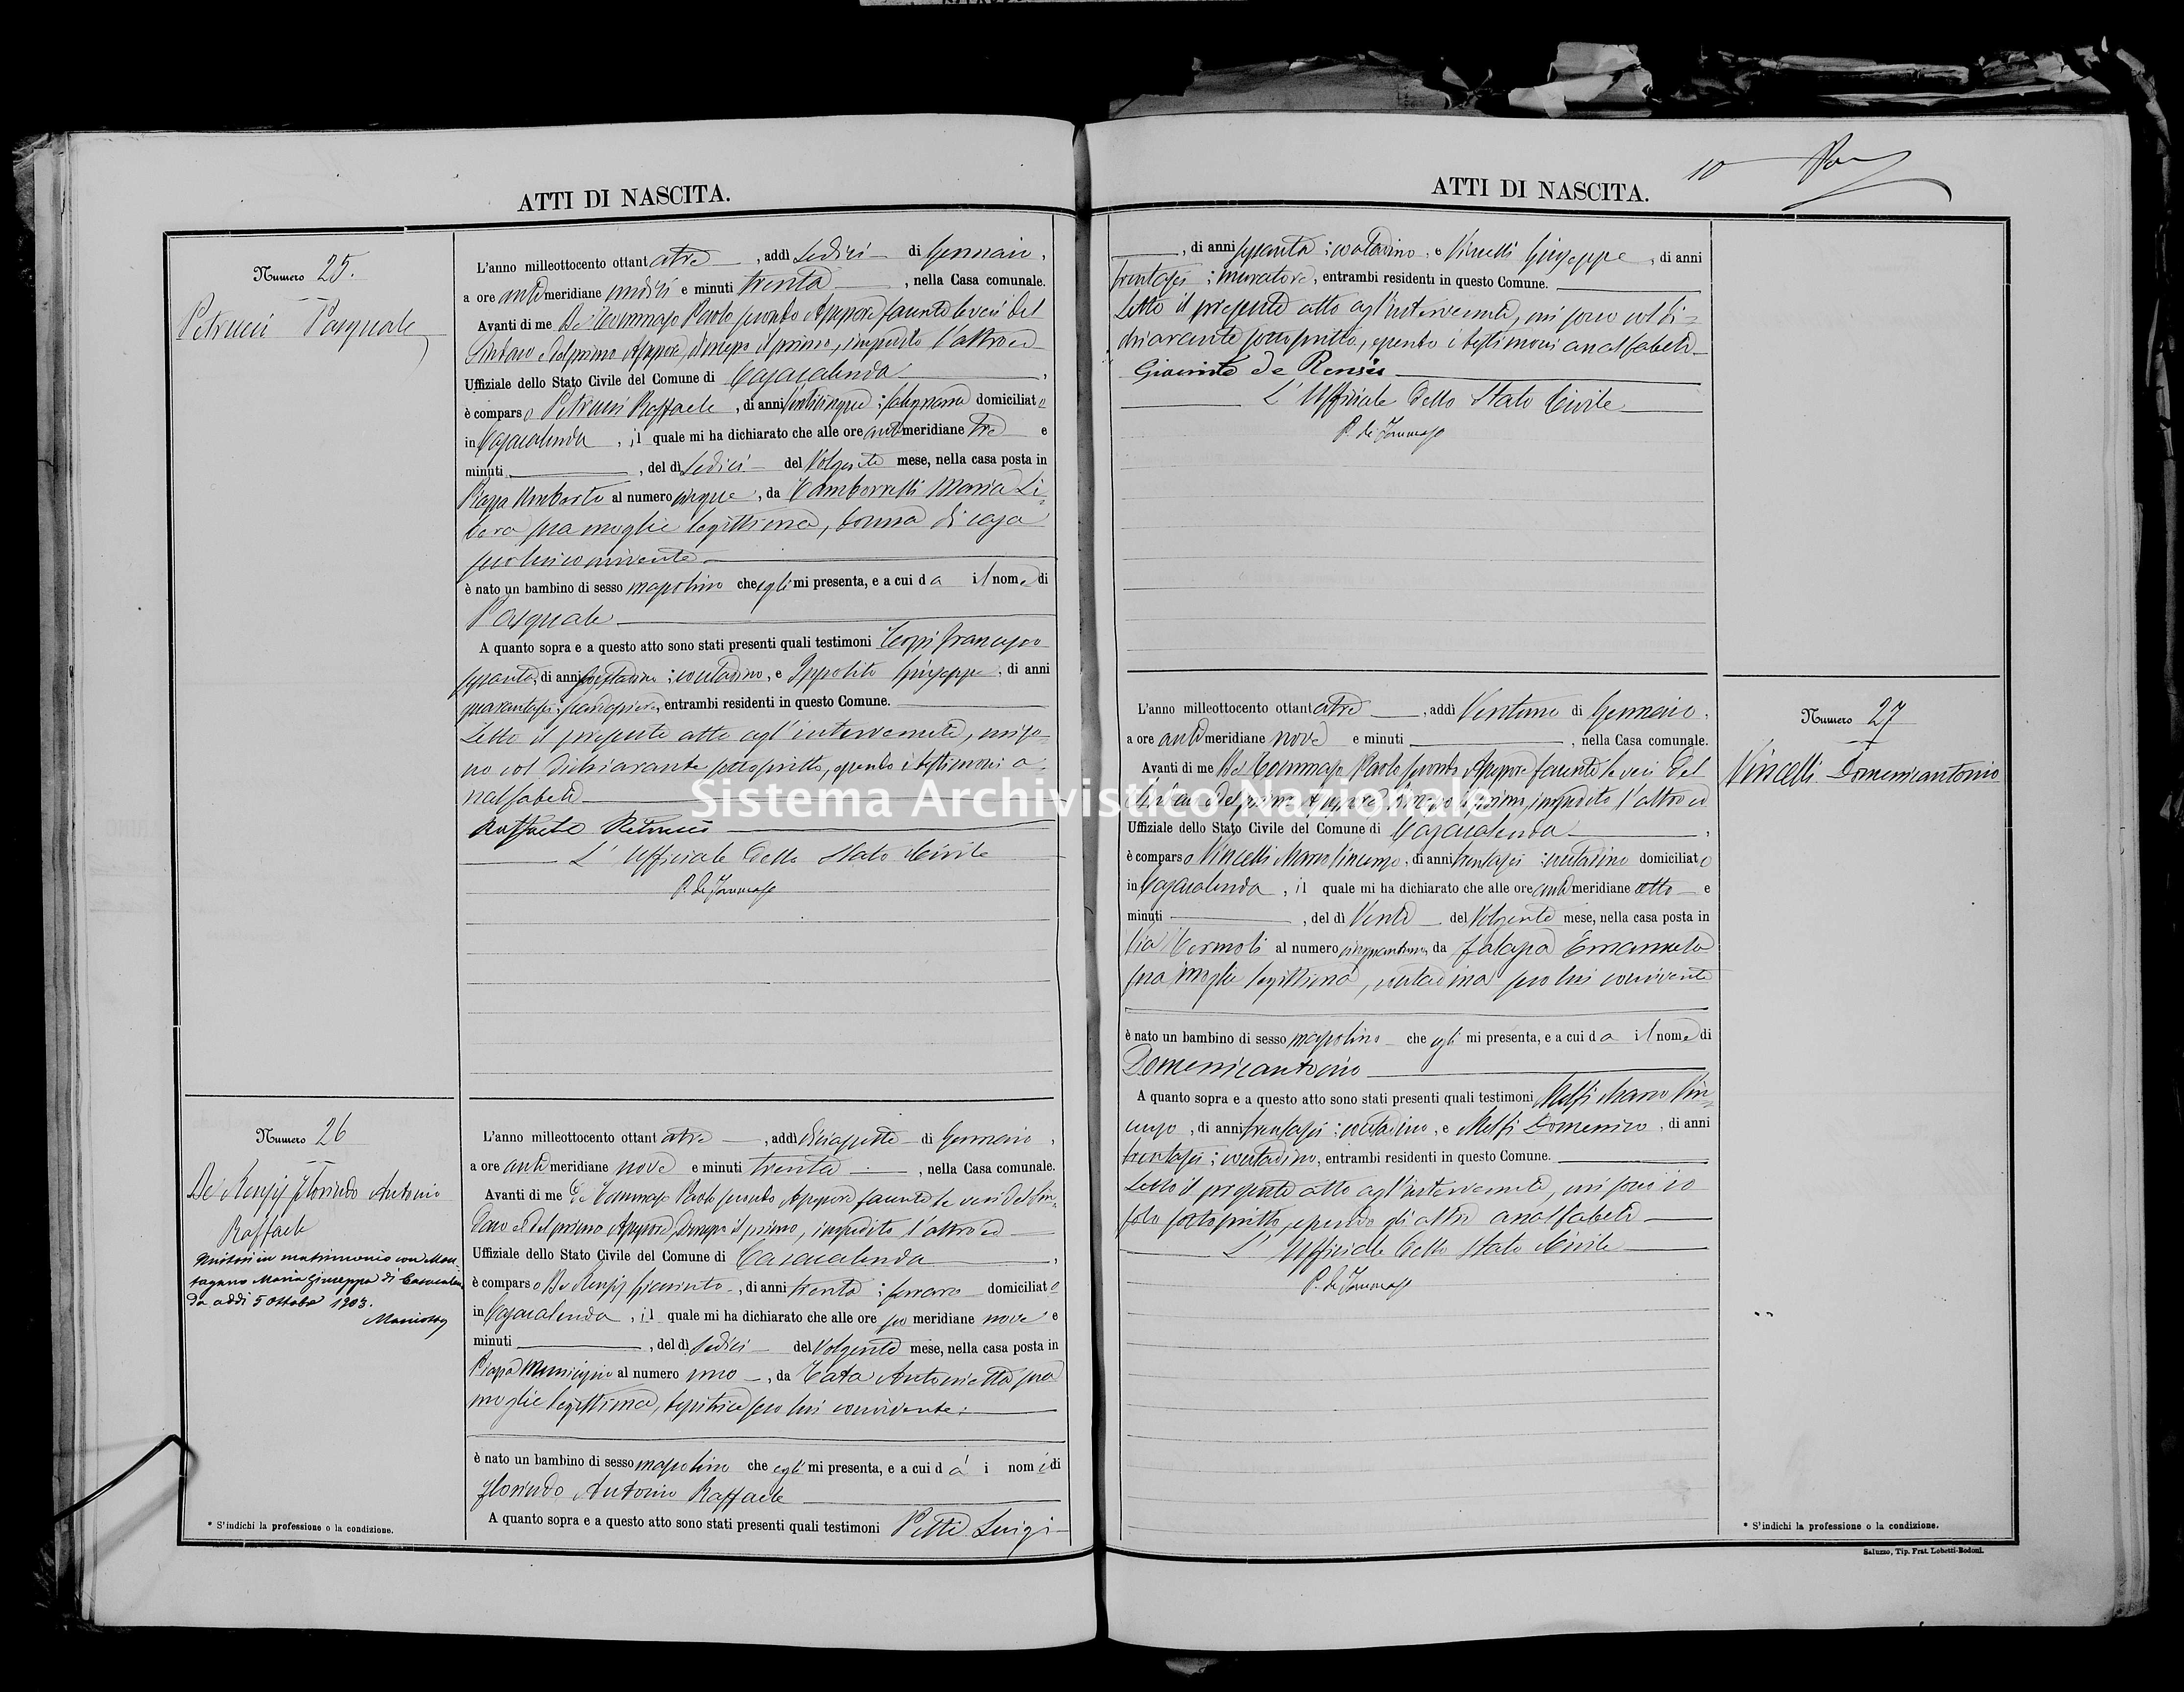 ATTI DI NASCITA.
Numero 25.
Petrucci Pasquale
L'anno milleottocento ottantatre, addì Sedici di Gennaio,
a ore antimeridiane undici e minuti trenta, nella Casa comunale.
Avanti di me De Tommaso Paolo secondo Assessore facente le veci del
Sindaco e del primo Assessore, dimesso il primo, impedito l'altro ed
Uffiziale dello Stato Civile del Comune di Casacalenda,
è comparso Petrucci Raffaele, di anni venticinque; falegname domiciliato
in Casacalenda, il quale mi ha dichiarato che alle ore antimeridiane tre e
minuti, del dì Sedici del Volgente mese, nella casa posta in
Piazza Umberto al numero cinque, da Tamborrelli Maria Li=
bera sua moglie legittima, donna di casa
seco lui convivente
è nato un bambino di sesso mascolino che egli mi presenta, e a cui da il nome di
Pasquale
A quanto sopra e a questo atto sono stati presenti quali testimoni Francesco
di anni contadino, e Ippolito Giuseppe, di anni
quarantasei, entrambi residenti in questo Comune.
Letto il presente atto agl'intervenuti, miso=
no col dichiarante sottoscritto, essendo i testimoni a=
nalfabeti
Raffaele Petrucci
L'Ufficiale dello Stato Civile
P. De Tommaso
Numero 26
De Rensis Florindo Antonio
Raffaele
Unitosi in matrimonio con Mon=
tagano Maria Giuseppa di Casacalen=
da addì 5 ottobre 1903.
L'anno milleottocento ottantatre, addì diciassette di Gennaio,
a ore antimeridiane nove e minuti trenta, nella Casa comunale.
Avanti di me De Tommaso Paolo secondo Assessore facente le veci del Sin=
daco e del primo Assessore, dimesso il primo, impedito l'altro ed
Uffiziale dello Stato Civile del Comune di Casacalenda,
è comparso De Rensis Giacinto, di anni trenta; ferraro domiciliato
in Casacalenda, il quale mi ha dichiarato che alle ore pomeridiane nove e
minuti, del dì Sedici del Volgente mese, nella casa posta in
Piazza Municipio al numero uno, da Tata Antonietta sua
moglie legittima, tessitrice seco lui convivente;
è nato un bambino di sesso mascolino che egli mi presenta, e a cui dà i nomi di
Florindo Antonio Raffaele
A quanto sopra e a questo atto sono stati presenti quali testimoni Petti Luigi
* S'indichi la professione o la condizione.
10
ATTI DI NASCITA.
, di anni sessanta; contadino, e Vincelli Giuseppe, di anni
trentasei; muratore, entrambi residenti in questo Comune.
Letto il presente atto agl'intervenuti, mi sono col di=
chiarante sottoscritto, essendo i testimoni analfabeti
Giacinto de Rensis
L'Ufficiale dello Stato Civile
P. De Tommaso
Numero 27
Vincelli Domenicantonio
L'anno milleottocento ottantatre, addì Ventuno di Gennaio,
a ore antimeridiane nove e minuti, nella Casa comunale.
Avanti di me De Tommaso Paolo secondo Assessore facente le veci del
Sindaco e del primo Assessore dimesso il primo, impedito l'altro ed
Uffiziale dello Stato Civile del Comune di Casacalenda,
è comparso Vincelli Marco Vincenzo, di anni trentasei; contadino domiciliato
in Casacalenda, il quale mi ha dichiarato che alle ore antimeridiane otto e
minuti, del dì Venti del Volgente mese, nella casa posta in
Via Termoli al numero cinquantuno, da Falapa Emanuela
sua moglie legittima, contadina seco lui convivente
è nato un bambino di sesso mascolino che egli mi presenta, e a cui da il nome di
Domenicantonio
A quanto sopra e a questo atto sono stati presenti quali testimoni Melfi Marco Vin=
cenzo, di anni trentasei; contadino, e Melfi Domenico, di anni
trentasei; contadino, entrambi residenti in questo Comune.
Letto il presente atto agl'intervenuti, mi sono io
solo sottoscritto, essendo gli altri analfabeti
L'Ufficiale dello Stato Civile
P. De Tommaso
* S'indichi la professione o la condizione.
Saluzzo, Tip. Frat. Lobetti-Bodoni.
Sistema Archivistico Nazionale